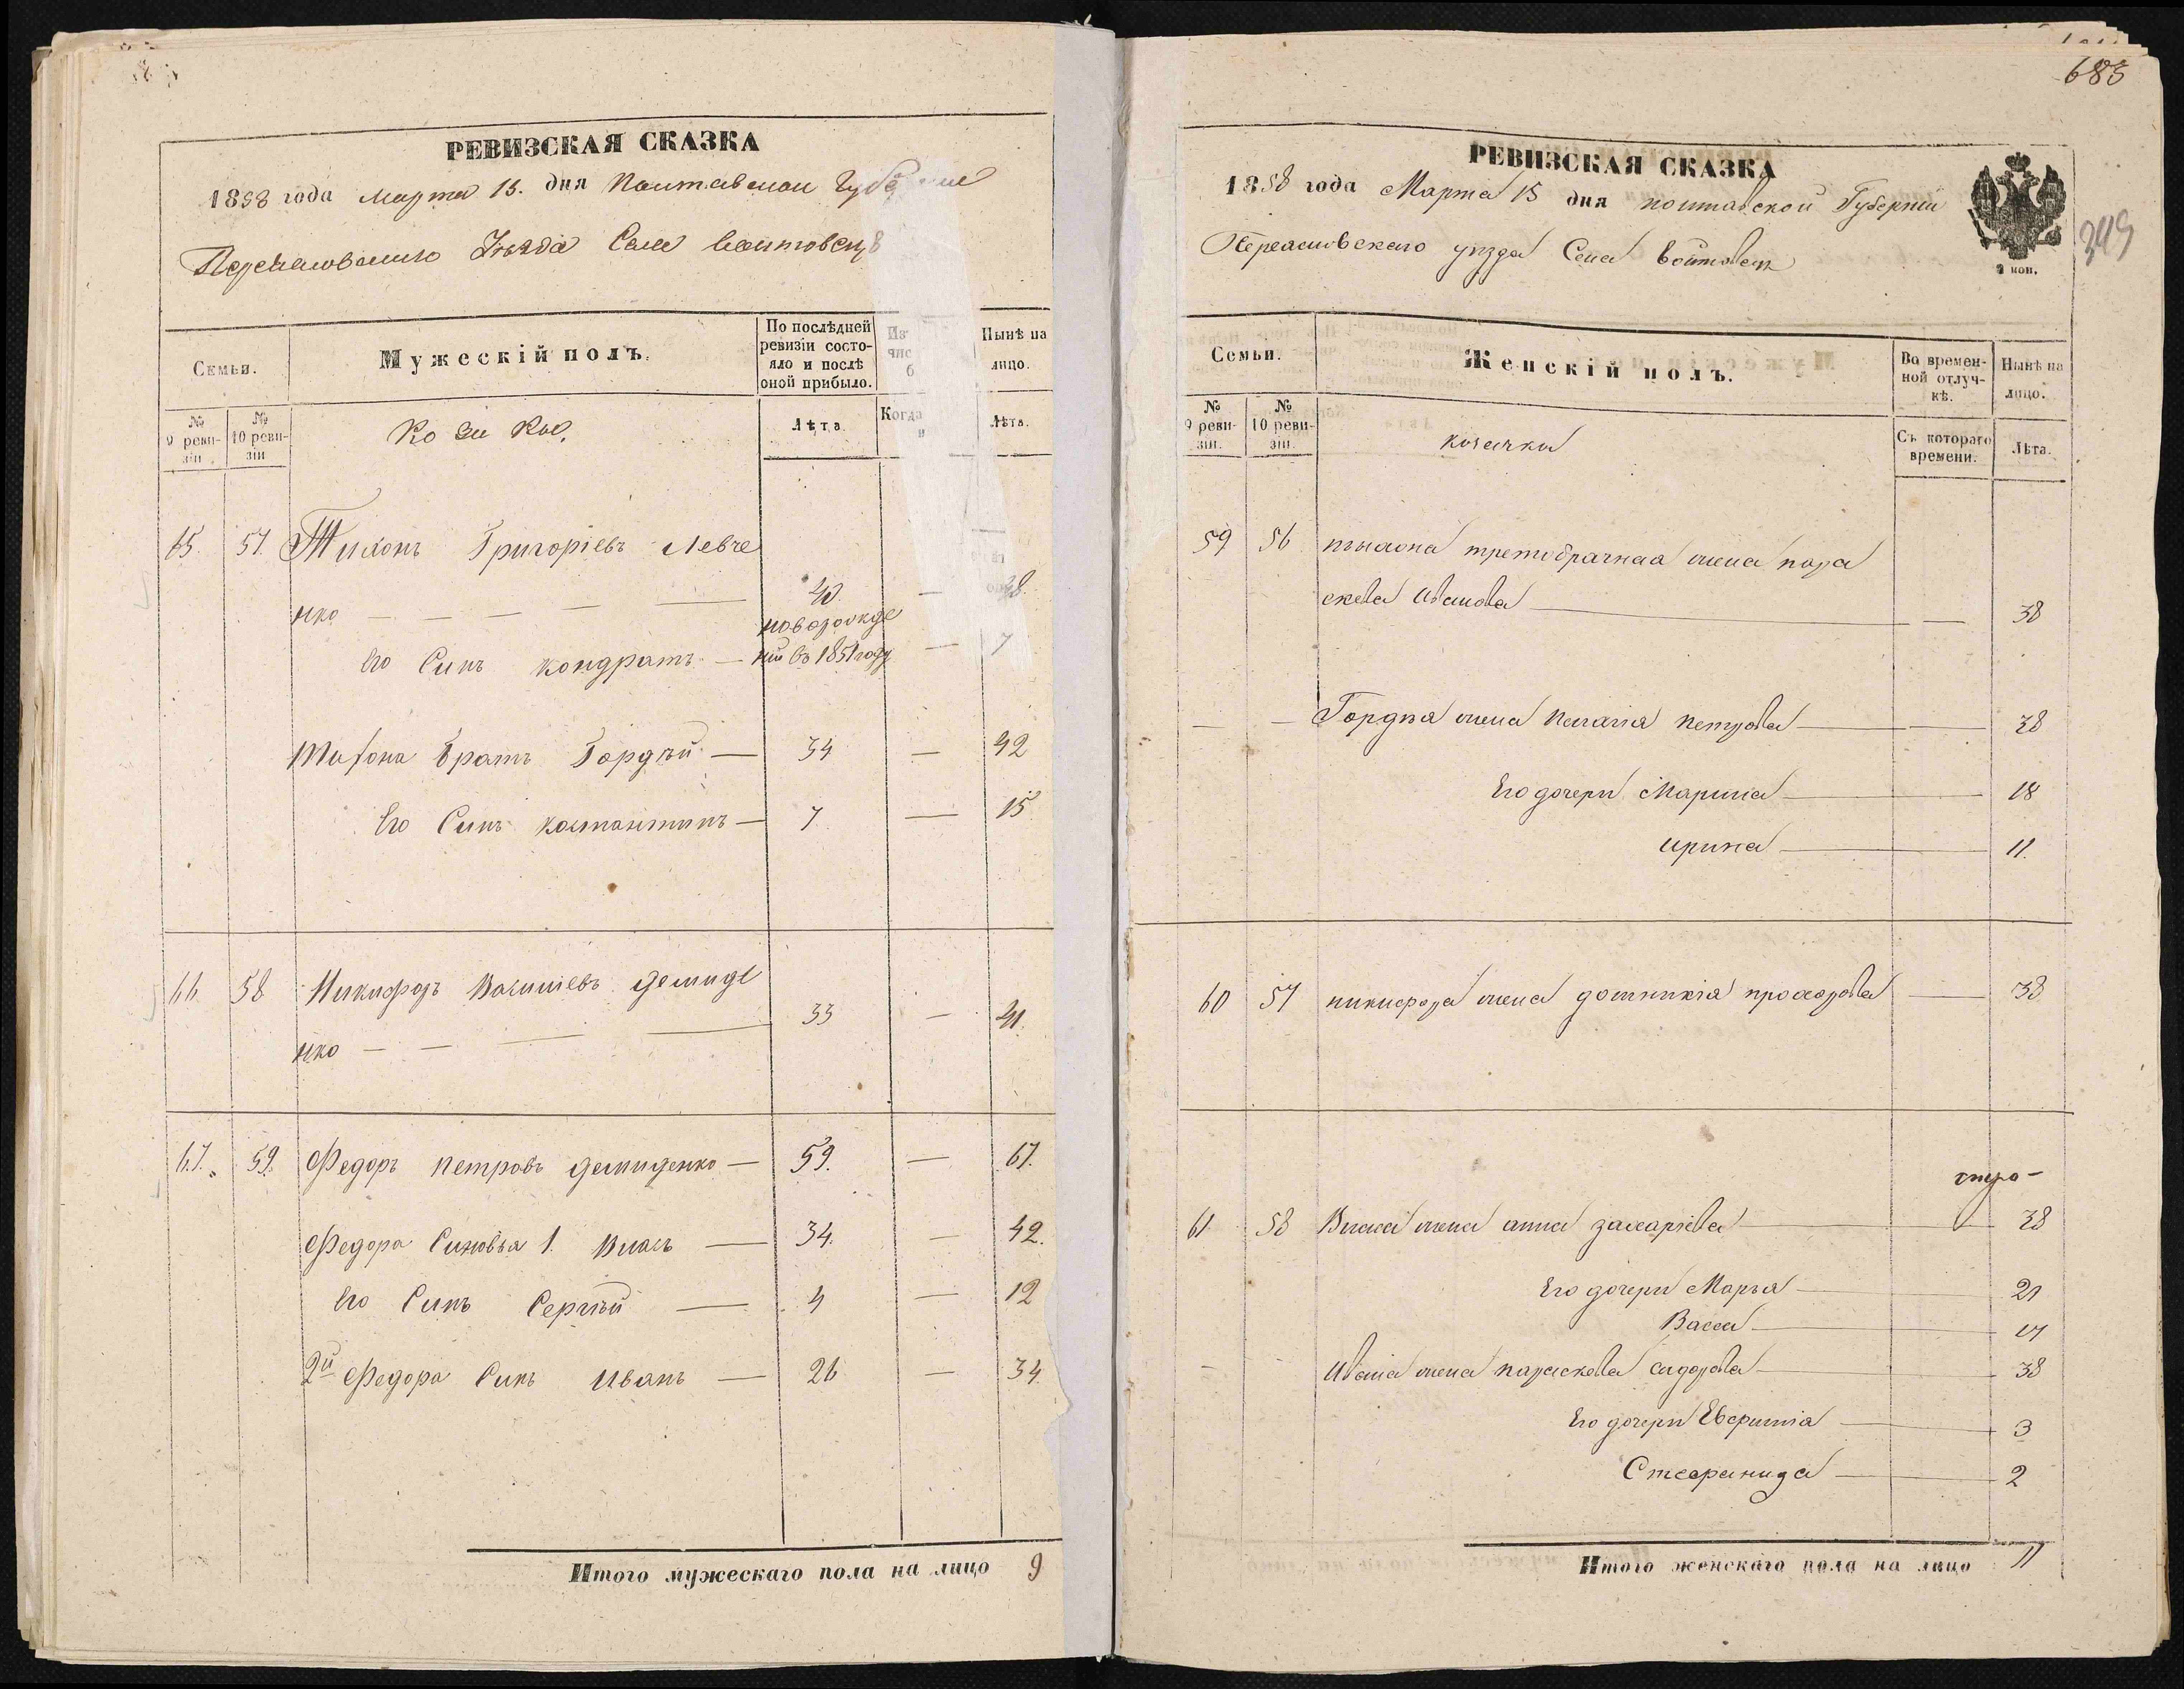 РЕВИЗСКАЯ СКАЗКА
1858 года марта 15. дня Полтавской
Переяславского Уезда Села Войтовецъ
Семьи.
Мужескій полъ.
По послѣдней ревизіи состояло и послѣ оной прибыло.
Из
чис
б
Нынѣ на лицо.
№ 9 ревизіи
№ 10 ревизіи
Козаки.
Лѣта
Когда
Лѣта.
65. 57. Тихонъ Григоріевъ Левче
нко — — — — 40. — 38.
новорожде
Его Синъ кондратъ — ній въ 1851 году — 7
Тихона братъ Гордѣй — 34 — 42
Его Синъ костантинъ — 7 — 15
66. 58 Никифоръ Василіевъ демиде
33 — 41.
нко — — — —
67. 59. Федоръ петровъ демиденко — 59. — 67.
Федора Синовья 1. Власъ — 34. — 42.
Его Синъ Сергѣй — 4 — 12
2й Федора Синъ Иванъ — 26 — 34.
Итого мужескаго пола на лицо 9
683
349
РЕВИЗСКАЯ СКАЗКА
1858 года Марта 15 дня полтавской Губерніи
Переясловского уезда Села войтовецъ
Семьи.
Женскій полъ.
Во временной отлучкѣ.
Нынѣ на лицо.
№ 9 ревизіи.
№ 10 ревизіи.
козачки
Съ котораго времени.
Лѣта.
59 56 тихона третобрачная жена пара
скева Иванова — 38
— — Гордѣя жена пелагія петрова — 38
Его дочери Марина — 18
ирина — 11.
60 57 никифора жена домникія прохорова — 38
61 58 Власа жена анна захаріева — 38
Его дочери Марья — 21
Васса — 17
— — Ивана жена параскева сидорова — 38
Его дочери Евфимія — 3
Стефанида — 2
Итого женскаго пола на лицо 11